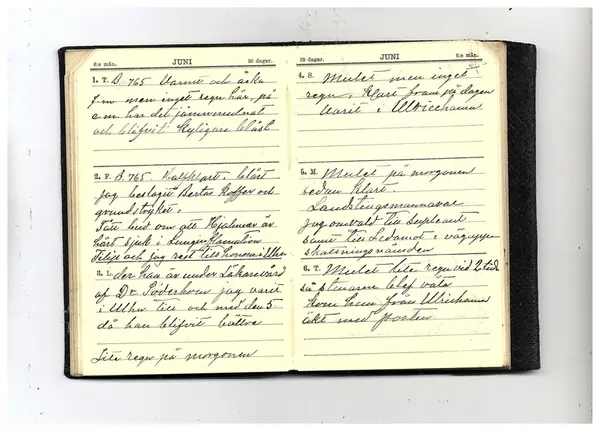 6te mån. JUNI 30 dagar.
1. T. B 765 Varmt och åska
f.m men inget regn här, på
e.m. har det jämmulnat
och blifvit kyligare blåst
2. F. B 765 Halfklart, blåst
jag beslagit Bertas Koffer och
grundstrykt.
Fått bud om att Hjalmar är
hårt sjuk i Lunginflamation
Filip och jag rest till honom i Uhn
3. L. der han är under läkarevård
af Dr. Söderbom jag varit
i Uhn till och med den 5
då han blifvit bättre
Lite regn på morgonen
30 dagar. JUNI 6te mån.
4. S. Mulet men inget
regn, Klart fram på dagen
Varit i Ulricehamn
5. M. Mulet på morgonen
sedan Klart.
Landstingsmannaval
jag omvald till supleant
samt till Ledamot i väguppe
skattningsnämden
6. T. Mulet lite regn vid 2 tid
så stmarne blef våta
Kom hem från Ulricehamn
åkt med posten